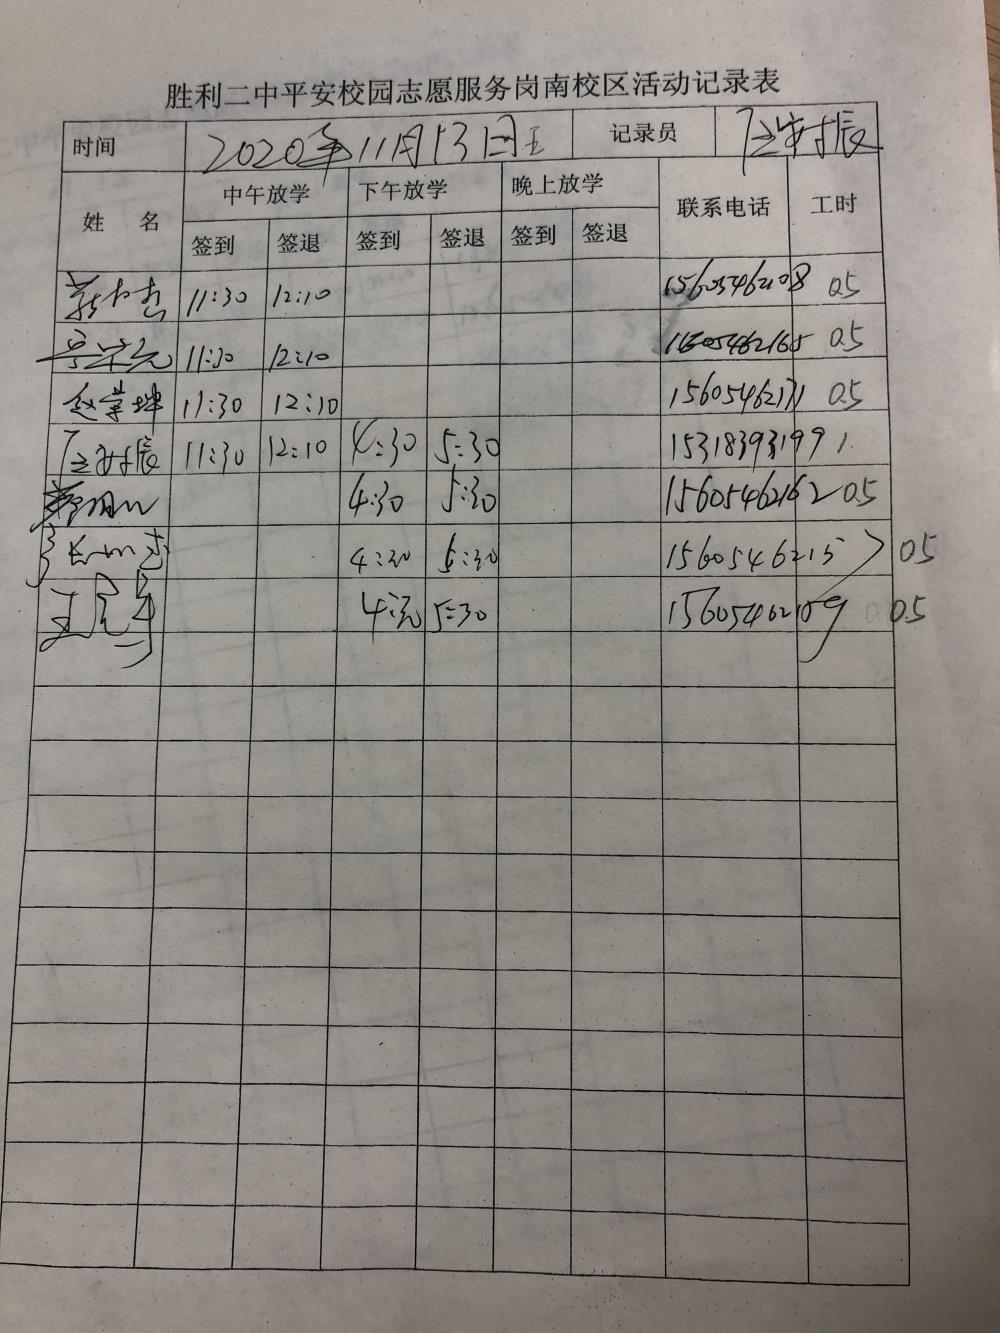 胜利二中平安校园志愿服务岗南校区活动记录表
时间 2020年11月13日 五 记录员
姓 名 中午放学 下午放学 晚上放学 联系电话 工时
签到 签退 签到 签退 签到 签退
11:30 12:10 15605462108 0.5
11:30 12:10 15605462165 0.5
赵 11:30 12:10 15605462171 0.5
11:30 12:10 4:30 5:30 15318393199 1.
4:30 5:30 15605462162 0.5
4:30 5:30 0.5
王 4:30 5:30 15605462109 0.5